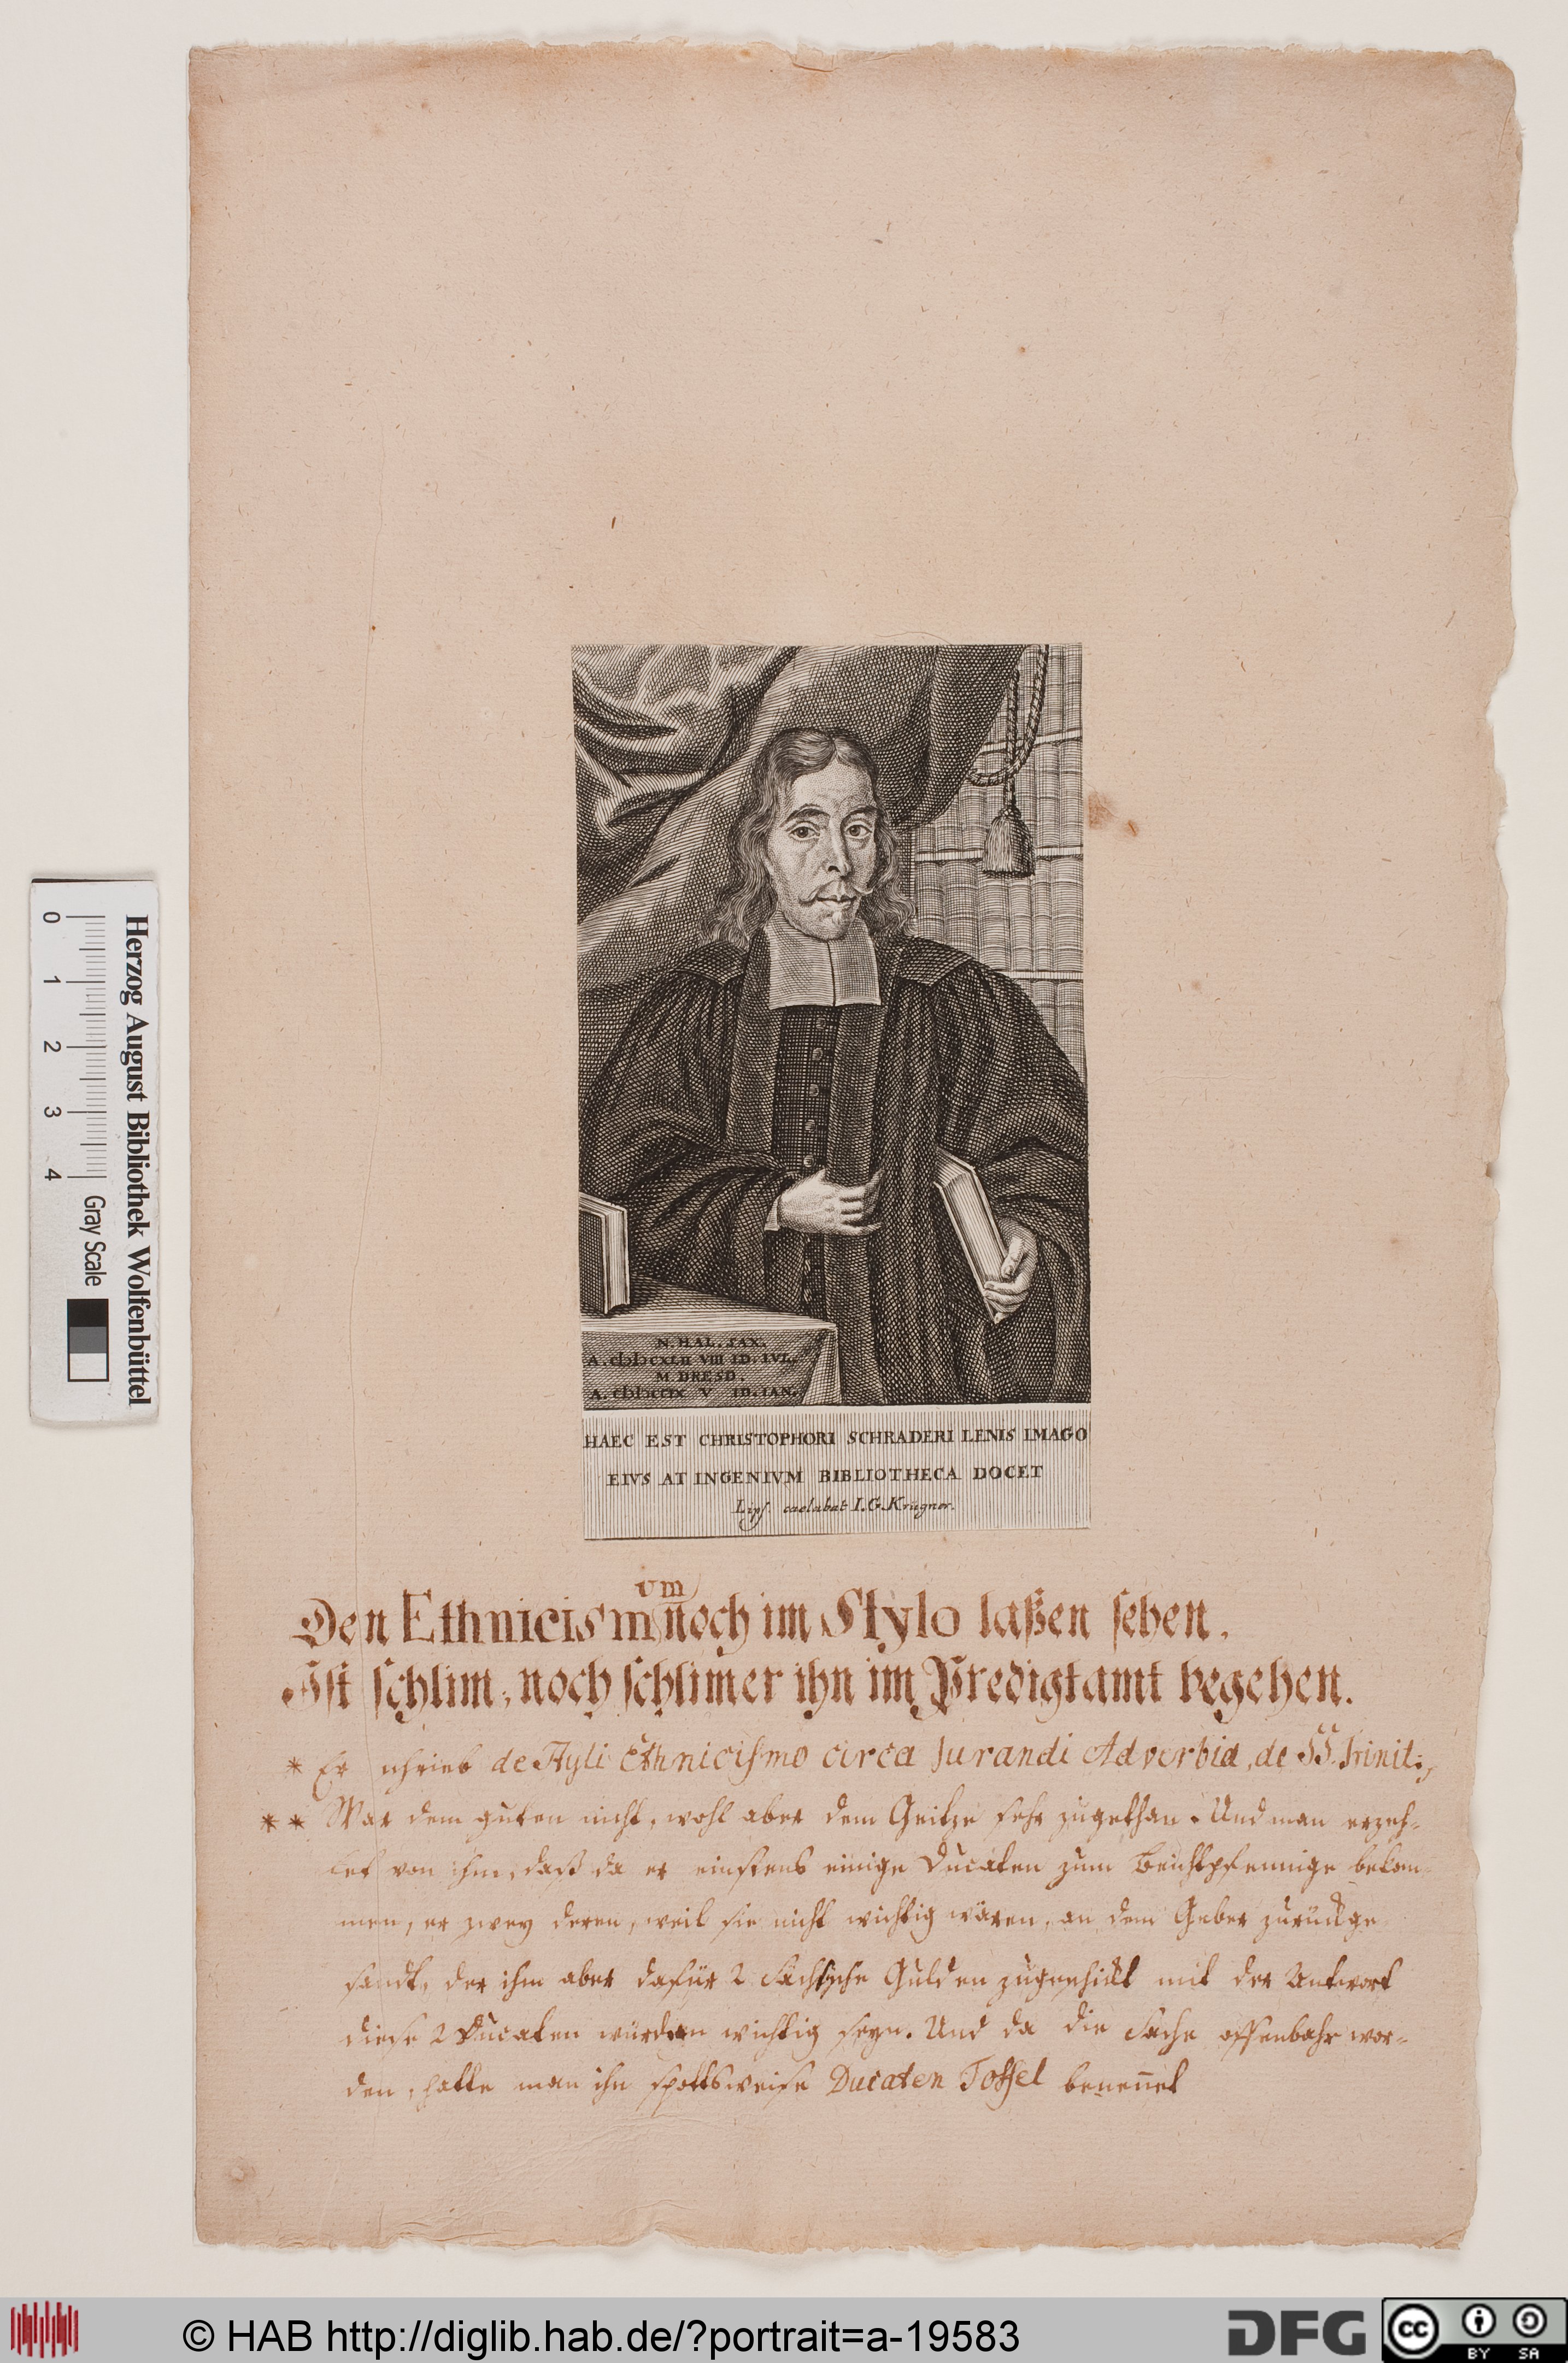 N. HAL. SAX.
A. CIƆIƆCXLII VIII ID. IVL.
M DRESD.
A. CIƆIƆCCIX V ID. IAN.
HAEC EST CHRISTOPHORI SCHRADERI LENIS IMAGO
EIVS AT INGENIVM BIBLIOTHECA DOCET
Lips. caelabat I. G. Krügner.
um
Den Ethnicism noch im Stylo laßen sehen,
Ist schlim, noch schlimer ihn im Predigtamt begehen.
* Er schrieb de Styli Ethnicismo circa Jurandi Adverbia, de SS. Trinit.
** War dem guten nicht, wohl aber dem Geitze sehr zugethan. Und man erzeh-
let von ihm, daß da er einstens einige Ducaten zum Beichtpfennige bekom-
men, er zwey deren, weil sie nicht wichtig wären, an dem Geber zurückge-
sandt, der ihm aber dafür 2 Sächsische Gulden zugeschickt mit der Antwort
diese 2 Ducaten würden wichtig seyn. Und da die Sache offenbahr wor-
den, hatte man ihn spottsweise Ducaten Toffel benennet
Herzog August Bibliothek Wolfenbüttel
0 1 2 3 4 Gray Scale
© HAB http://diglib.hab.de/?portrait=a-19583
DFG
cc BY SA